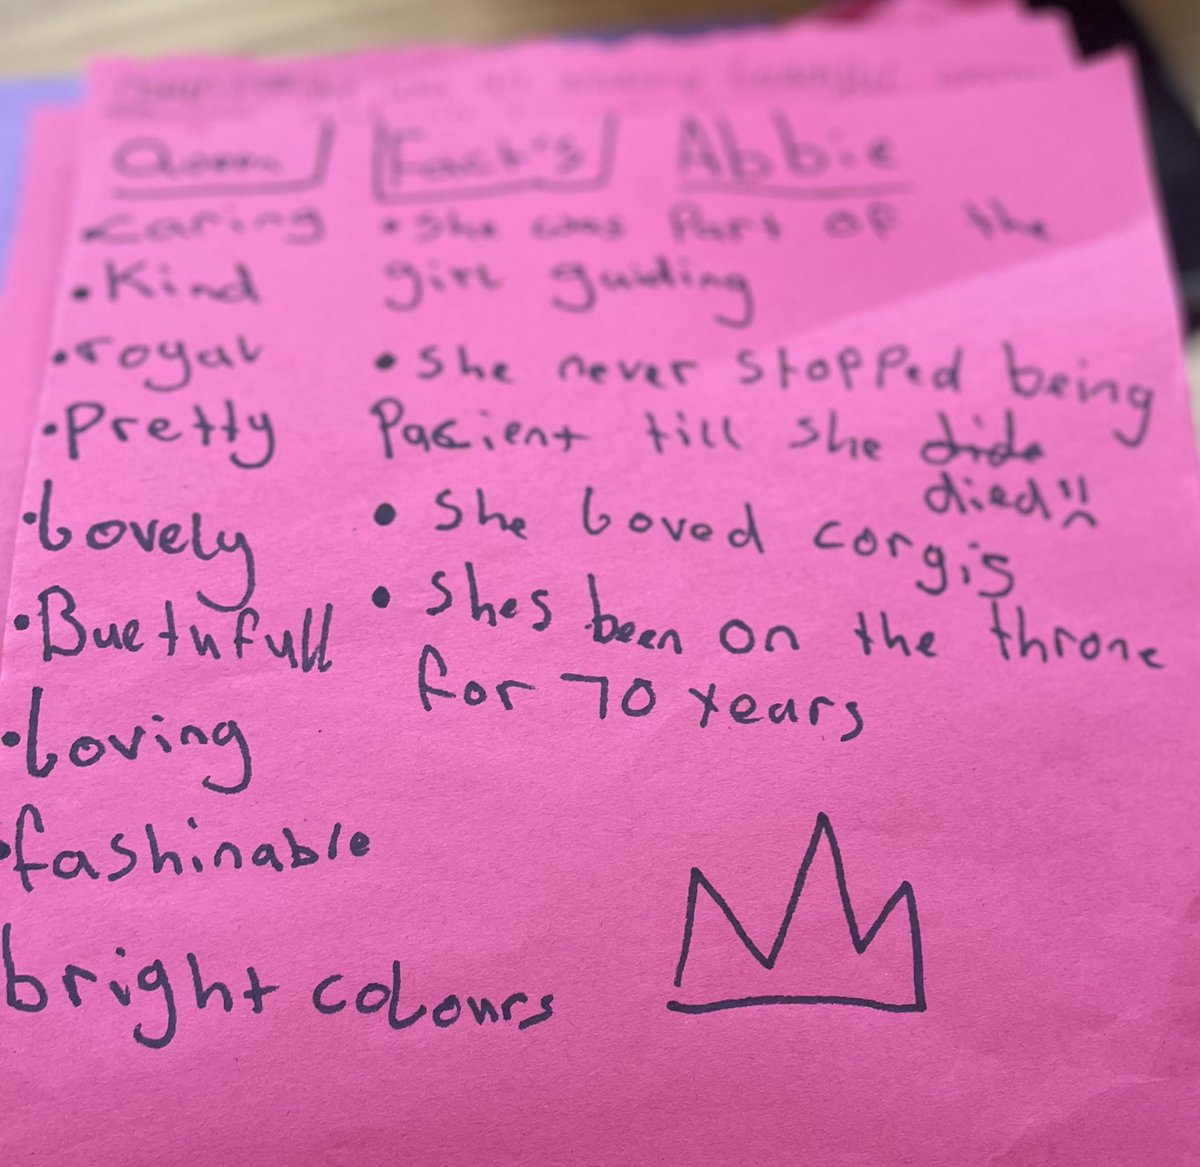 Queen Fact's Abbie
• caring
• Kind
• royal
• Pretty
• Lovely
• Buetufull
• Loving
• fashinable
bright colours
• She was Part of the
girl guiding
• She never stopped being
Pacient till she dide
died!!
• She loved corgis
• Shes been on the throne
for 70 years